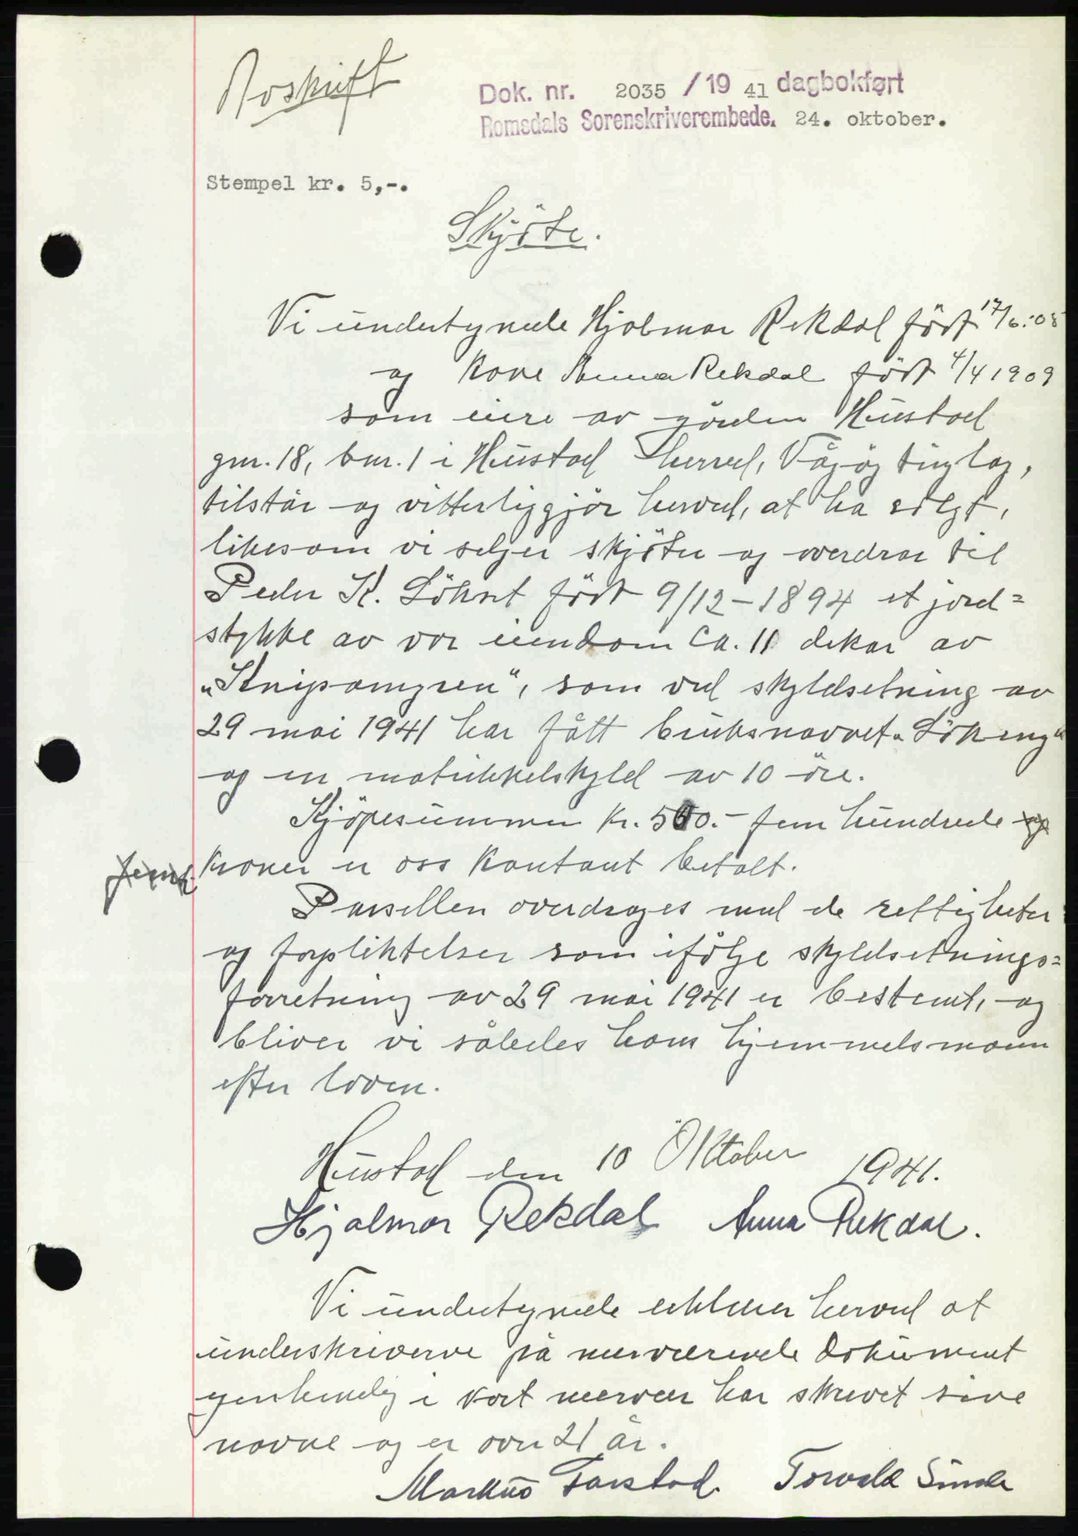 Avskrift
Dok. nr. 2035 / 19 41 dagbokført
Romsdals Sorenskriverembede. 24. oktober.
Stempel kr. 5,-.
Skjöte.
Vi undertynede Hjalmar Rekdal födt 17/6.-08
og kone Anna Rekdal födt 4/4 1909
som eiere av gården Hustad
gnr. 18, bnr. 1 i Hustad herred, Vågöy tinglag,
tilstår og vitterliggjör herved, at ha solgt,
likesom vi selger skjöter og overdrar til
Peder K. Lökset födt 9/12-1894 et jord=
stykke av vor eiendom ca. 11 dekar av
"Knipamyren", som ved skyldsetning av
29 mai 1941 har fått bruksnavnet "Lökeng"
og en matrikkelskyld av 10 öre.
Kjöpesummen kr. 500.- fem hundrede og
kroner er oss kontant betalt.
Parsellen overdrages med de rettigheter
og forpliktelser som ifölge skyldsetnings=
forretning av 29 mai 1941 er bestemt, og
bliver vi således hans hjemmelsmann
efter loven.
Hustad den 10 Oktober 1941.
Hjalmar Rekdal Anna Rekdal.
Vi undertynede erklærer herved at
underskriverne på nærværende dokument
egenhendig i vort nærvær har skrevet sine
navne og er over 21 år.
Markus Farstad. Torvald Sunde